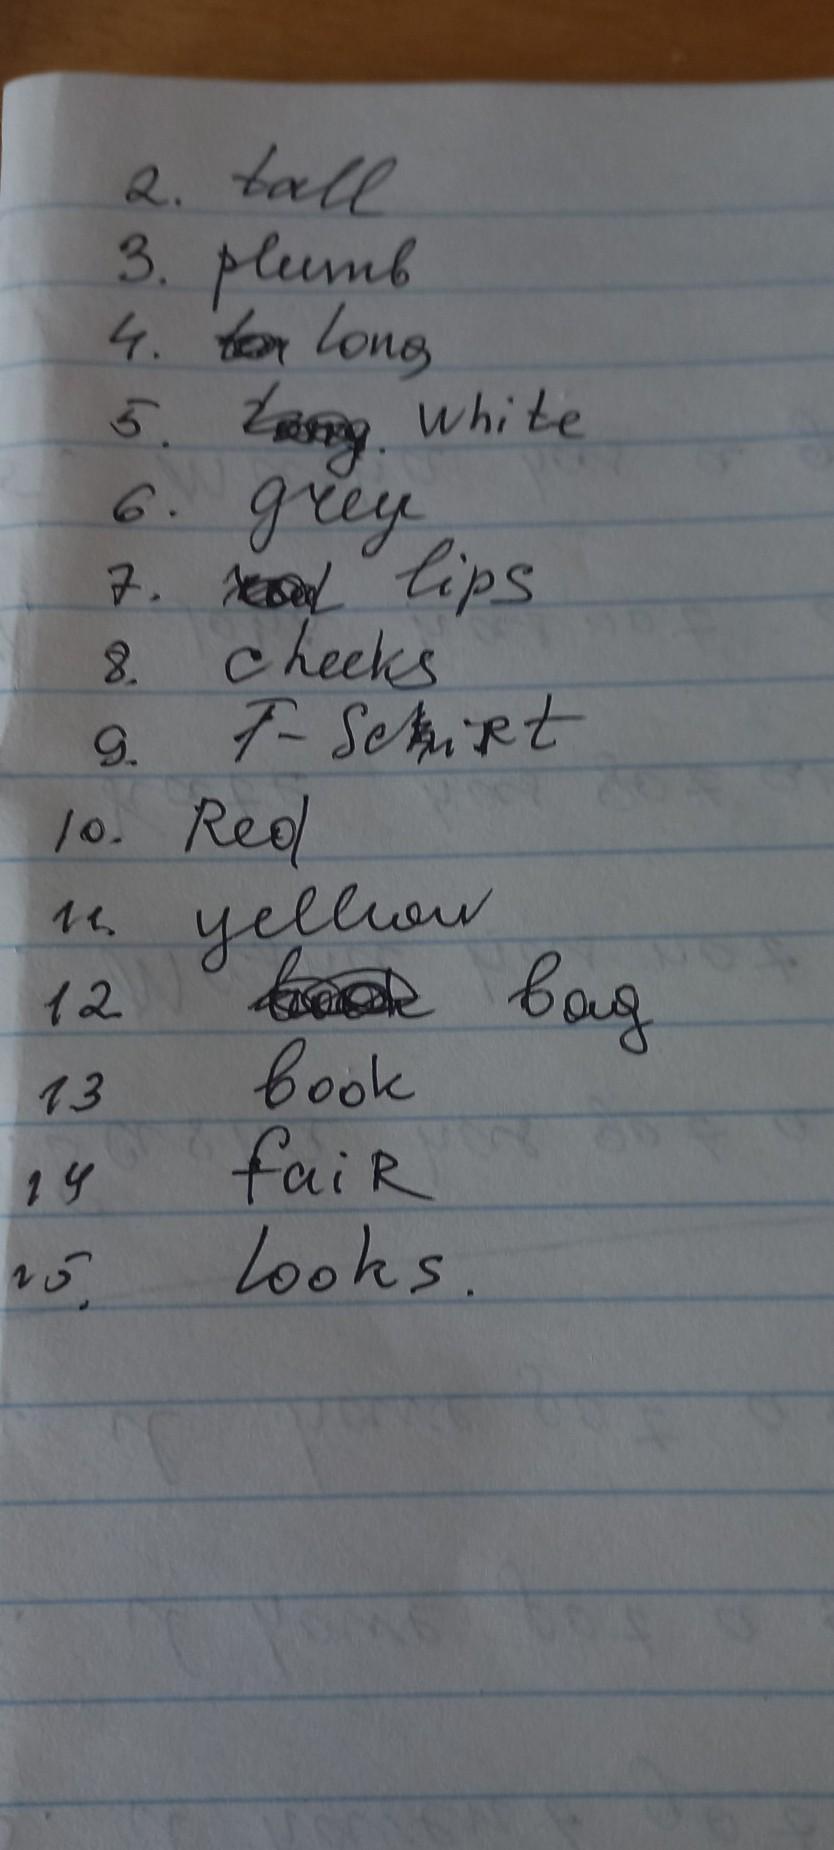 2. tall
3. plumb
4. long
5. White
6. grey
7. lips
8. cheeks
9. T-Schirt
10. Red
11. yellow
12 bag
13 book
14 faiR
15. looks.